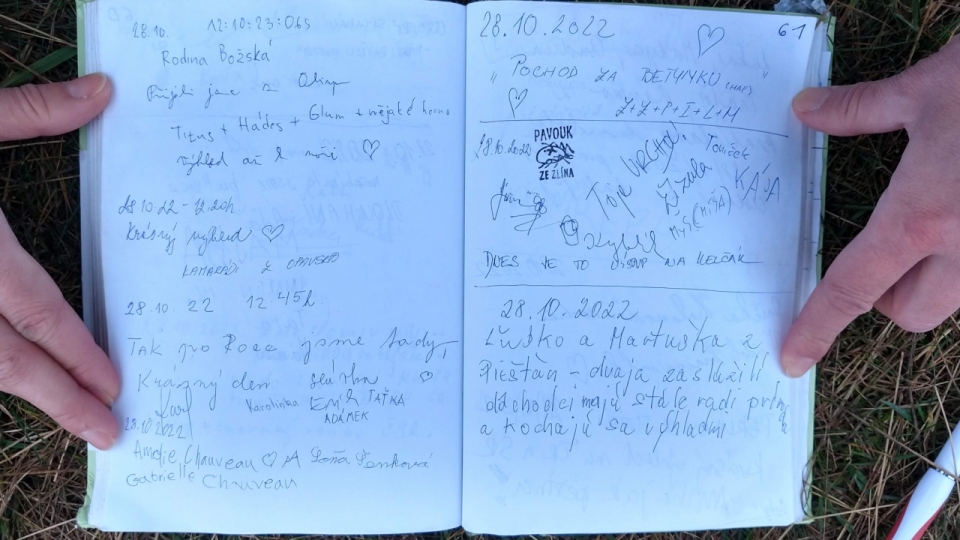 28.10. 12:10:23:065
Rodina Božská
Přijeli jsme z
Titus + Hádes + Glum + nějaké
výhled až k moři ♡
28.10.22 - 12.20h
Krásný výhled ♡
KAMARÁDI Z OPAVSKO
28.10 22 12 45h
Tak po Roce jsme tady,
Krásný den ♡
Karl Karolínka TAŤKA
ADÁMEK
28.10.2022
Amélie Chauveau ♡ A Soňa
Gabrielle Chauveau
28.10.2022 ♡ 61
„POCHOD ZA BETYNKU (HAF)"
♡ Z+Z+P+I+L+M
28.10.2022 PAVOUK
ZE ZLÍNA
VRCHOL! Tomíček
Týja Zízala KÁJA
MYŠ (MÍŠA)
DNES JE TO VÝSTUP NA KELČÁK
28.10.2022
Luďko a Martuška z
Piešťan - dvaja zaslúžilí
dôchodci majú stále radi prírodu
a kochajú sa výhľadmi